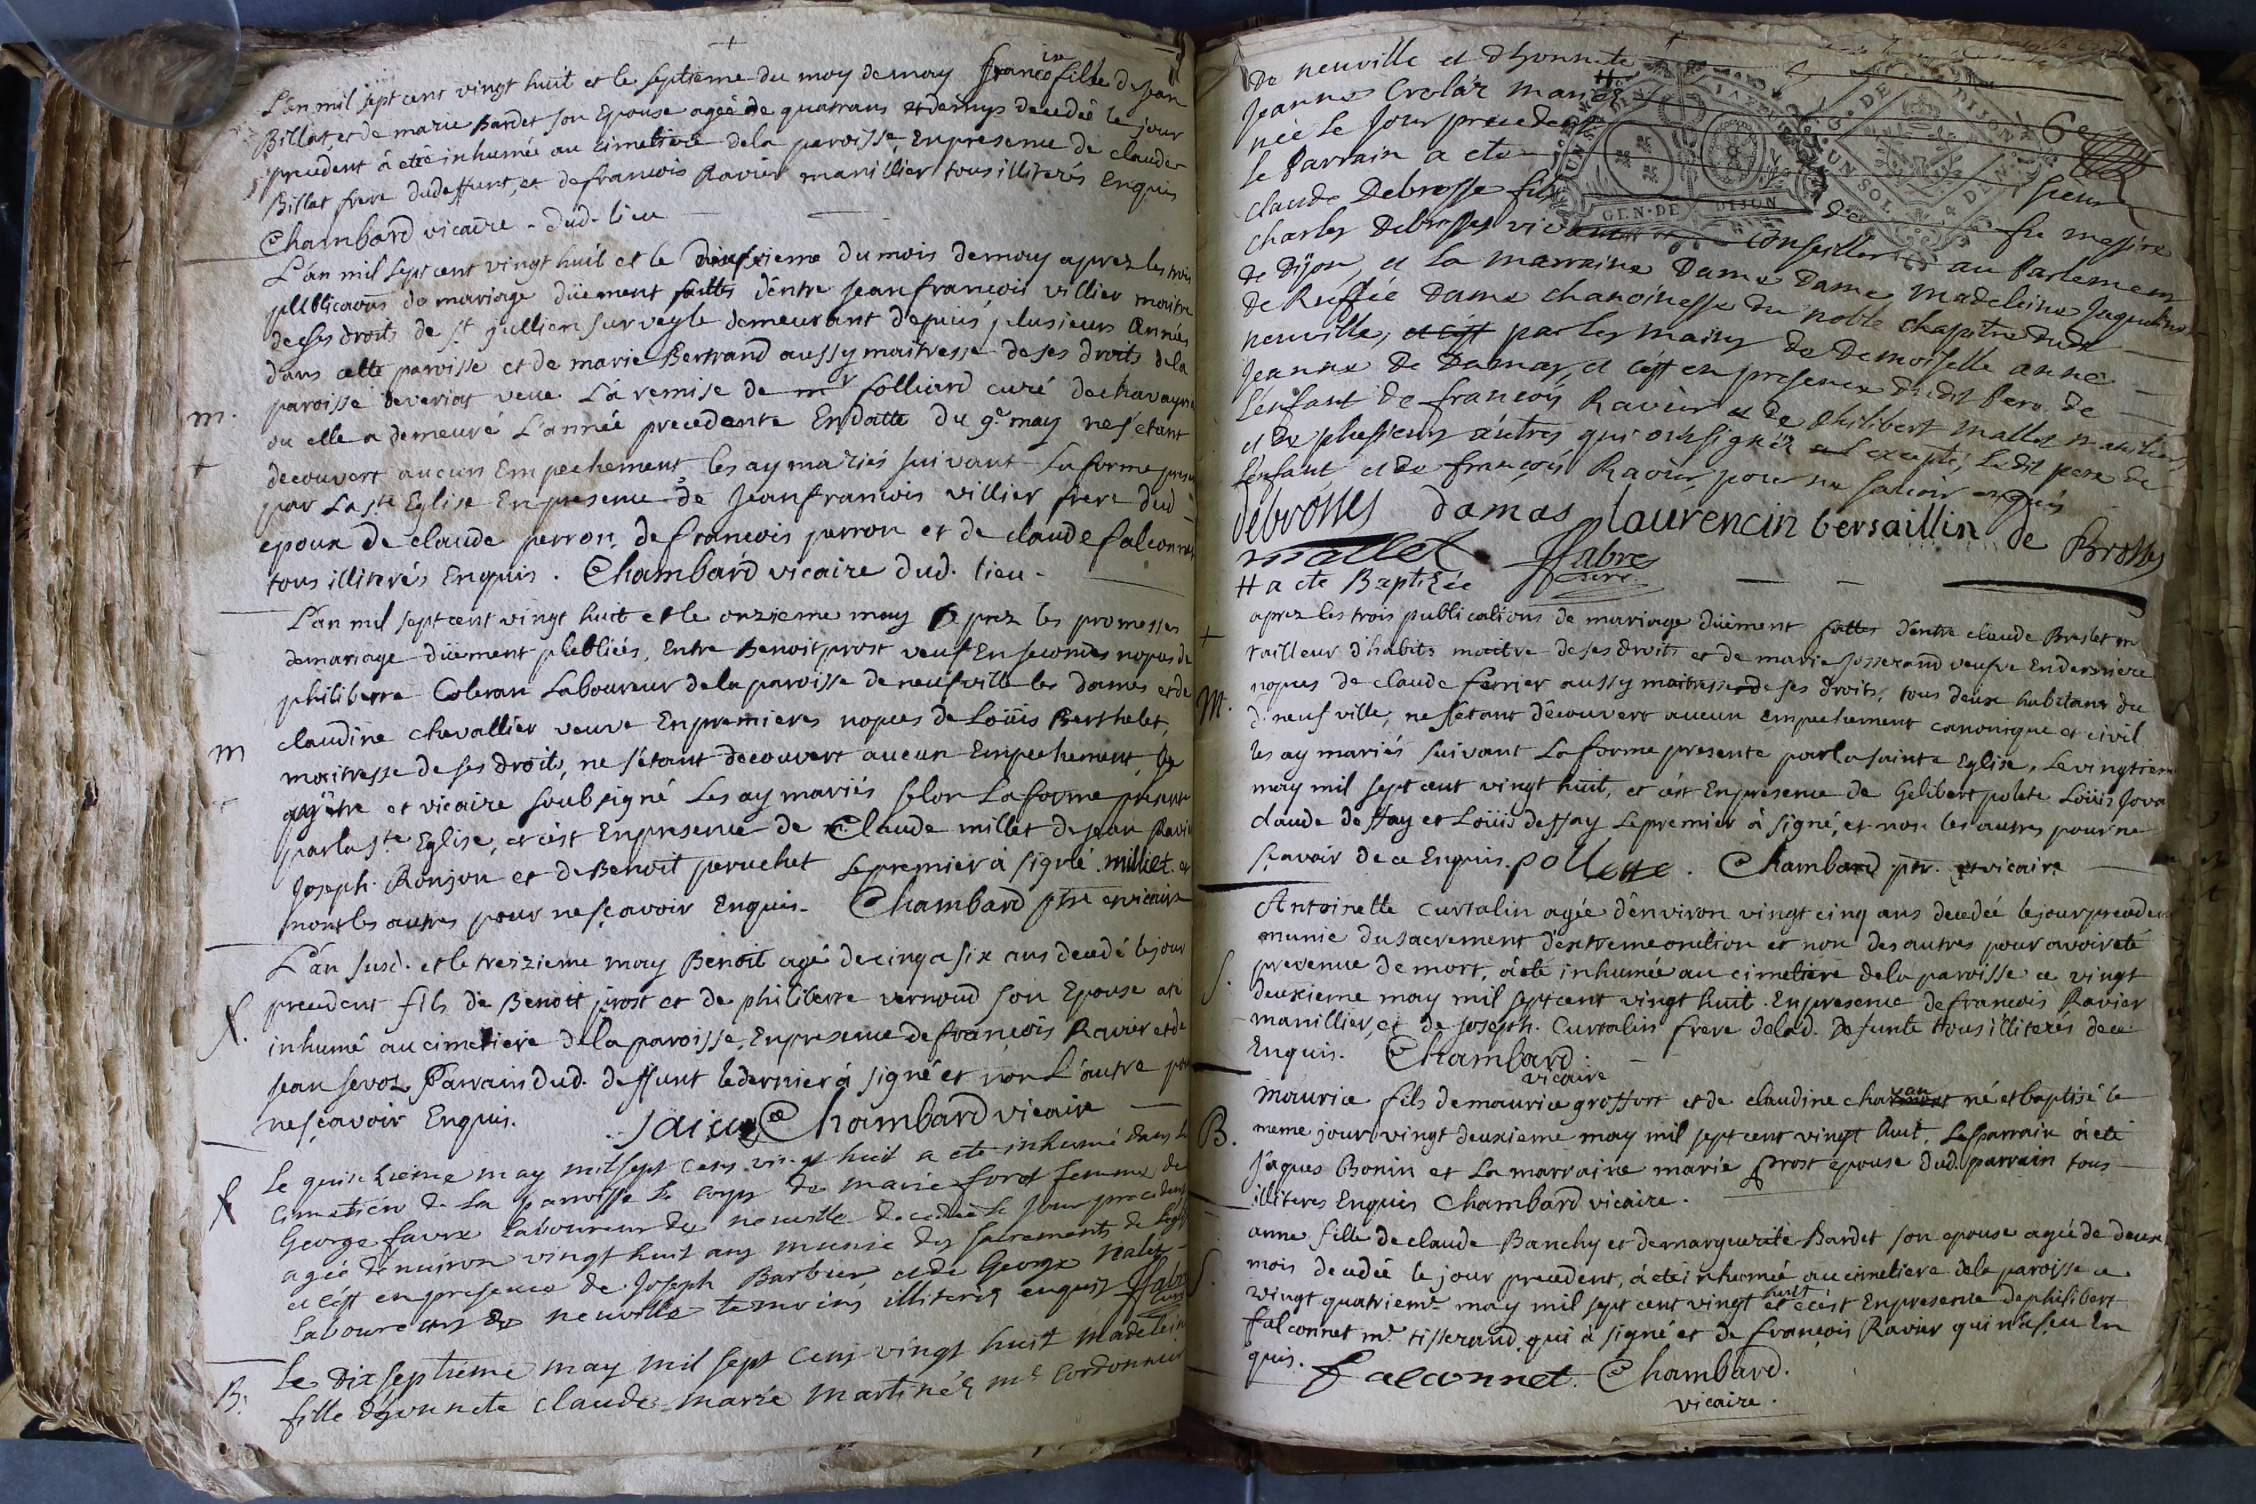 L'an mil sept cent vingt huit et le septieme du moy de may francoise fille de Jean
Billat, et de marie Bardet son Epouse agée de quatrans et demys decedée le jour
precedent à eté inhumée au cimetiere dela paroisse, En presence de claude
Billat frere dudeffunt, et defrancois Ravier manillier tous illiterés Enquis
Chambard vicaire - dud. lieu
L'an mil sept cent vingt huit et le dixieme du mois demay aprez les trois
publicaons de mariage düement faittes d'entre Jean francois villier maitre
deses droits de st. jullien sur veyle demeurant depuis plusieurs Années
dans cette paroisse et de marie Bertrand aussy maitresse deses droits dela
paroisse deveriat veue La remise de mr folliard curé de chavayria
m.
ou elle a demeuré L'année precedente En datte du 9e may nes'etant
decouvert aucun Empechement les ay mariés suivant La forme prescr
par La ste Eglise En presence de Jean francois villier frere dud
epoux de claude perron, de francois perron et de claude falconnet
tous illiterés Enquis. Chambard vicaire dud. lieu -
L'an mil sept cent vingt huit et le onzieme may Aprez les promesses
demariage düement publiées, Entre Benoit prost veuf En secondes nopces de
philiberte Coleran Laboureur dela paroisse de neufville les dames et de
claudine chevallier veuve En premieres nopces de Loüis Berthelet,
m
maitresse deses droits, ne s'étant decouvert aucun Empechement, Je
prêtre et vicaire soubsigné Les ay mariés selon La forme presente
par la ste Eglise, et c'est En presence de Claude millet de jean Ravie
Joseph. Ronjon et de Benoit peruchet Le premier à signé. milliet. et
non les autres pour ne sçavoir Enquis. Chambard ptre et vicaire
L'an susd. et le treizieme may Benoit agé de cinq a six ans decedé lejour
precedent fils de Benoit prost et de philiberte vernoud son Epouse a eté
S.
inhumé au cimetiere dela paroisse, En presence de françois Ravier et de
jean sevoz Parrain dud. deffunt le dernier à signé et non L'autre pour
ne sçavoir Enquis. Chambard vicaire
Le quinzieme may mil sept cens vingt huit a ete inhumé dans le
S
cimetiere de La paroisse Le corps de marie foret femme de
George favre laboureur de neuville decedée Le Jour precedent
agée denviron vingt huit ans munie des sacrements de Legl
et c'est en presence de Joseph Barbier et de George
laboureurs de neuville temoins illiterés enquis ffabre
curé
Le dix septieme may mil sept cens vingt huit madelein
B.
fille d'honnete claude marie martiné me cordonnier
de neuville et d'honnete
Jeanne Crolar mariez #
née le Jour precedent
le Parrain a ete
sieur
claude Debrosse fils de fu messire
charles Debrosses vivant conseiller au Parlement
de Dijon, et La marraine Dame Dame Madeleine Jaqueline
de Ruffée Dame chanoinesse du noble chapitre dudt
neuville, par les mains de Demoiselle anne
Jeanne de Damas, et c'est en presence du dit Pere de
L'enfant de francois Ravier et de Philibert Mallet manilier
et de plusieurs autres qui ont signéz excepté, Le dit pere de
l'enfant et de françois Ravier pour ne savoir enquis
debrosses damas laurencin bersaillin de Brosses
mallet ffabre
curé
# a ete Baptizée
aprez les trois publications de mariage düement faittes d'entre claude Breslet m
tailleur d'habits maitre deses droits et de marie Josserand veufve En derniere
nopces de claude ferrier aussy maitresse de ses droits, tous deux habitans du
M.
d. neufville, ne s'étant decouvert aucun empechement canonique et civil
les ay mariés suivant La forme presente par la sainte Eglise, Le vingtieme
may mil sept cent vingt huit, et c'est En presence de Gelibert polete Loüis Jova
claude deffay et Loüis deffay Le premier à signé, et non les autres pour ne
sçavoir de ce Enquis. pollette. Chambard ptr. et vicaire
Antoinette curtalin agée d'environ vingt cinq ans decedée le jour preceden
munie du sacrement d'extreme onction et non des autres pour avoir eté
prevenue de mort, à eté inhumée au cimetiere dela paroisse ce vingt
S.
deuxieme may mil sept cent vingt huit. En presence de francois Ravier
manillier, et de joseph. Curtalin frere delad. defunte tous illiterés de ce
Enquis. Chambard.
vicaire
maurice fils de maurice groffort et de claudine charvan né et baptisé le
B.
meme jour vingt deuxieme may mil sept cent vingt huit, Le parrain à eté
jaques Bonin et La marraine marie prost epouse dud. parrain tous
illiteres Enquis Chambard vicaire.
anne fille de claude Banchy et de marguerite Bardet son epouse agée de deux
S.
mois decedée le jour precedent, à eté inhumée au cimetiere dela paroisse ce
vingt quatrieme may mil sept cent vingt huit et c'est En presence de philibert
falconnet me. tisserand qui à signé et de françois Ravier qui n'a sçeu En
quis. falconnet. Chambard.
vicaire.
GEN. DE DIJON
UN SOL